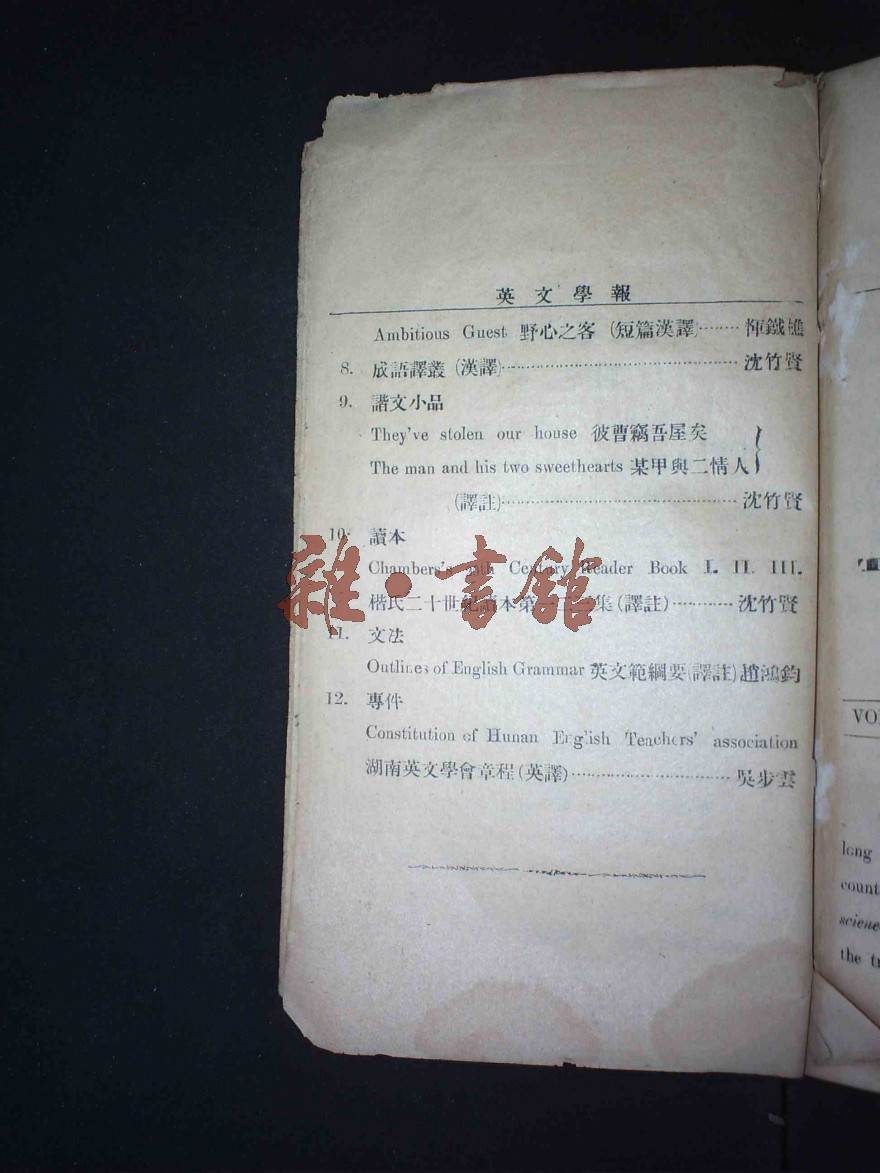 英文學報
Ambitious Guest 野心之客 (短篇漢譯)········ 惲鐵樵
8. 成語譯叢 (漢譯)················································ 沈竹賢
9. 諧文小品
They've stolen our house 彼曹竊吾屋矣
The man and his two sweethearts 某甲與二情人
(譯註)················································ 沈竹賢
10. 讀本
Chambers's 20th Century Reader Book I. II. III.
楷氏二十世紀讀本第一二三集(譯註)············ 沈竹賢
11. 文法
Outlines of English Grammar 英文範綱要(譯註)趙鴻鈞
12. 專件
Constitution of Hunan English Teachers' association
湖南英文學會章程(英譯)································ 吳步雲
雜·書館
long
the